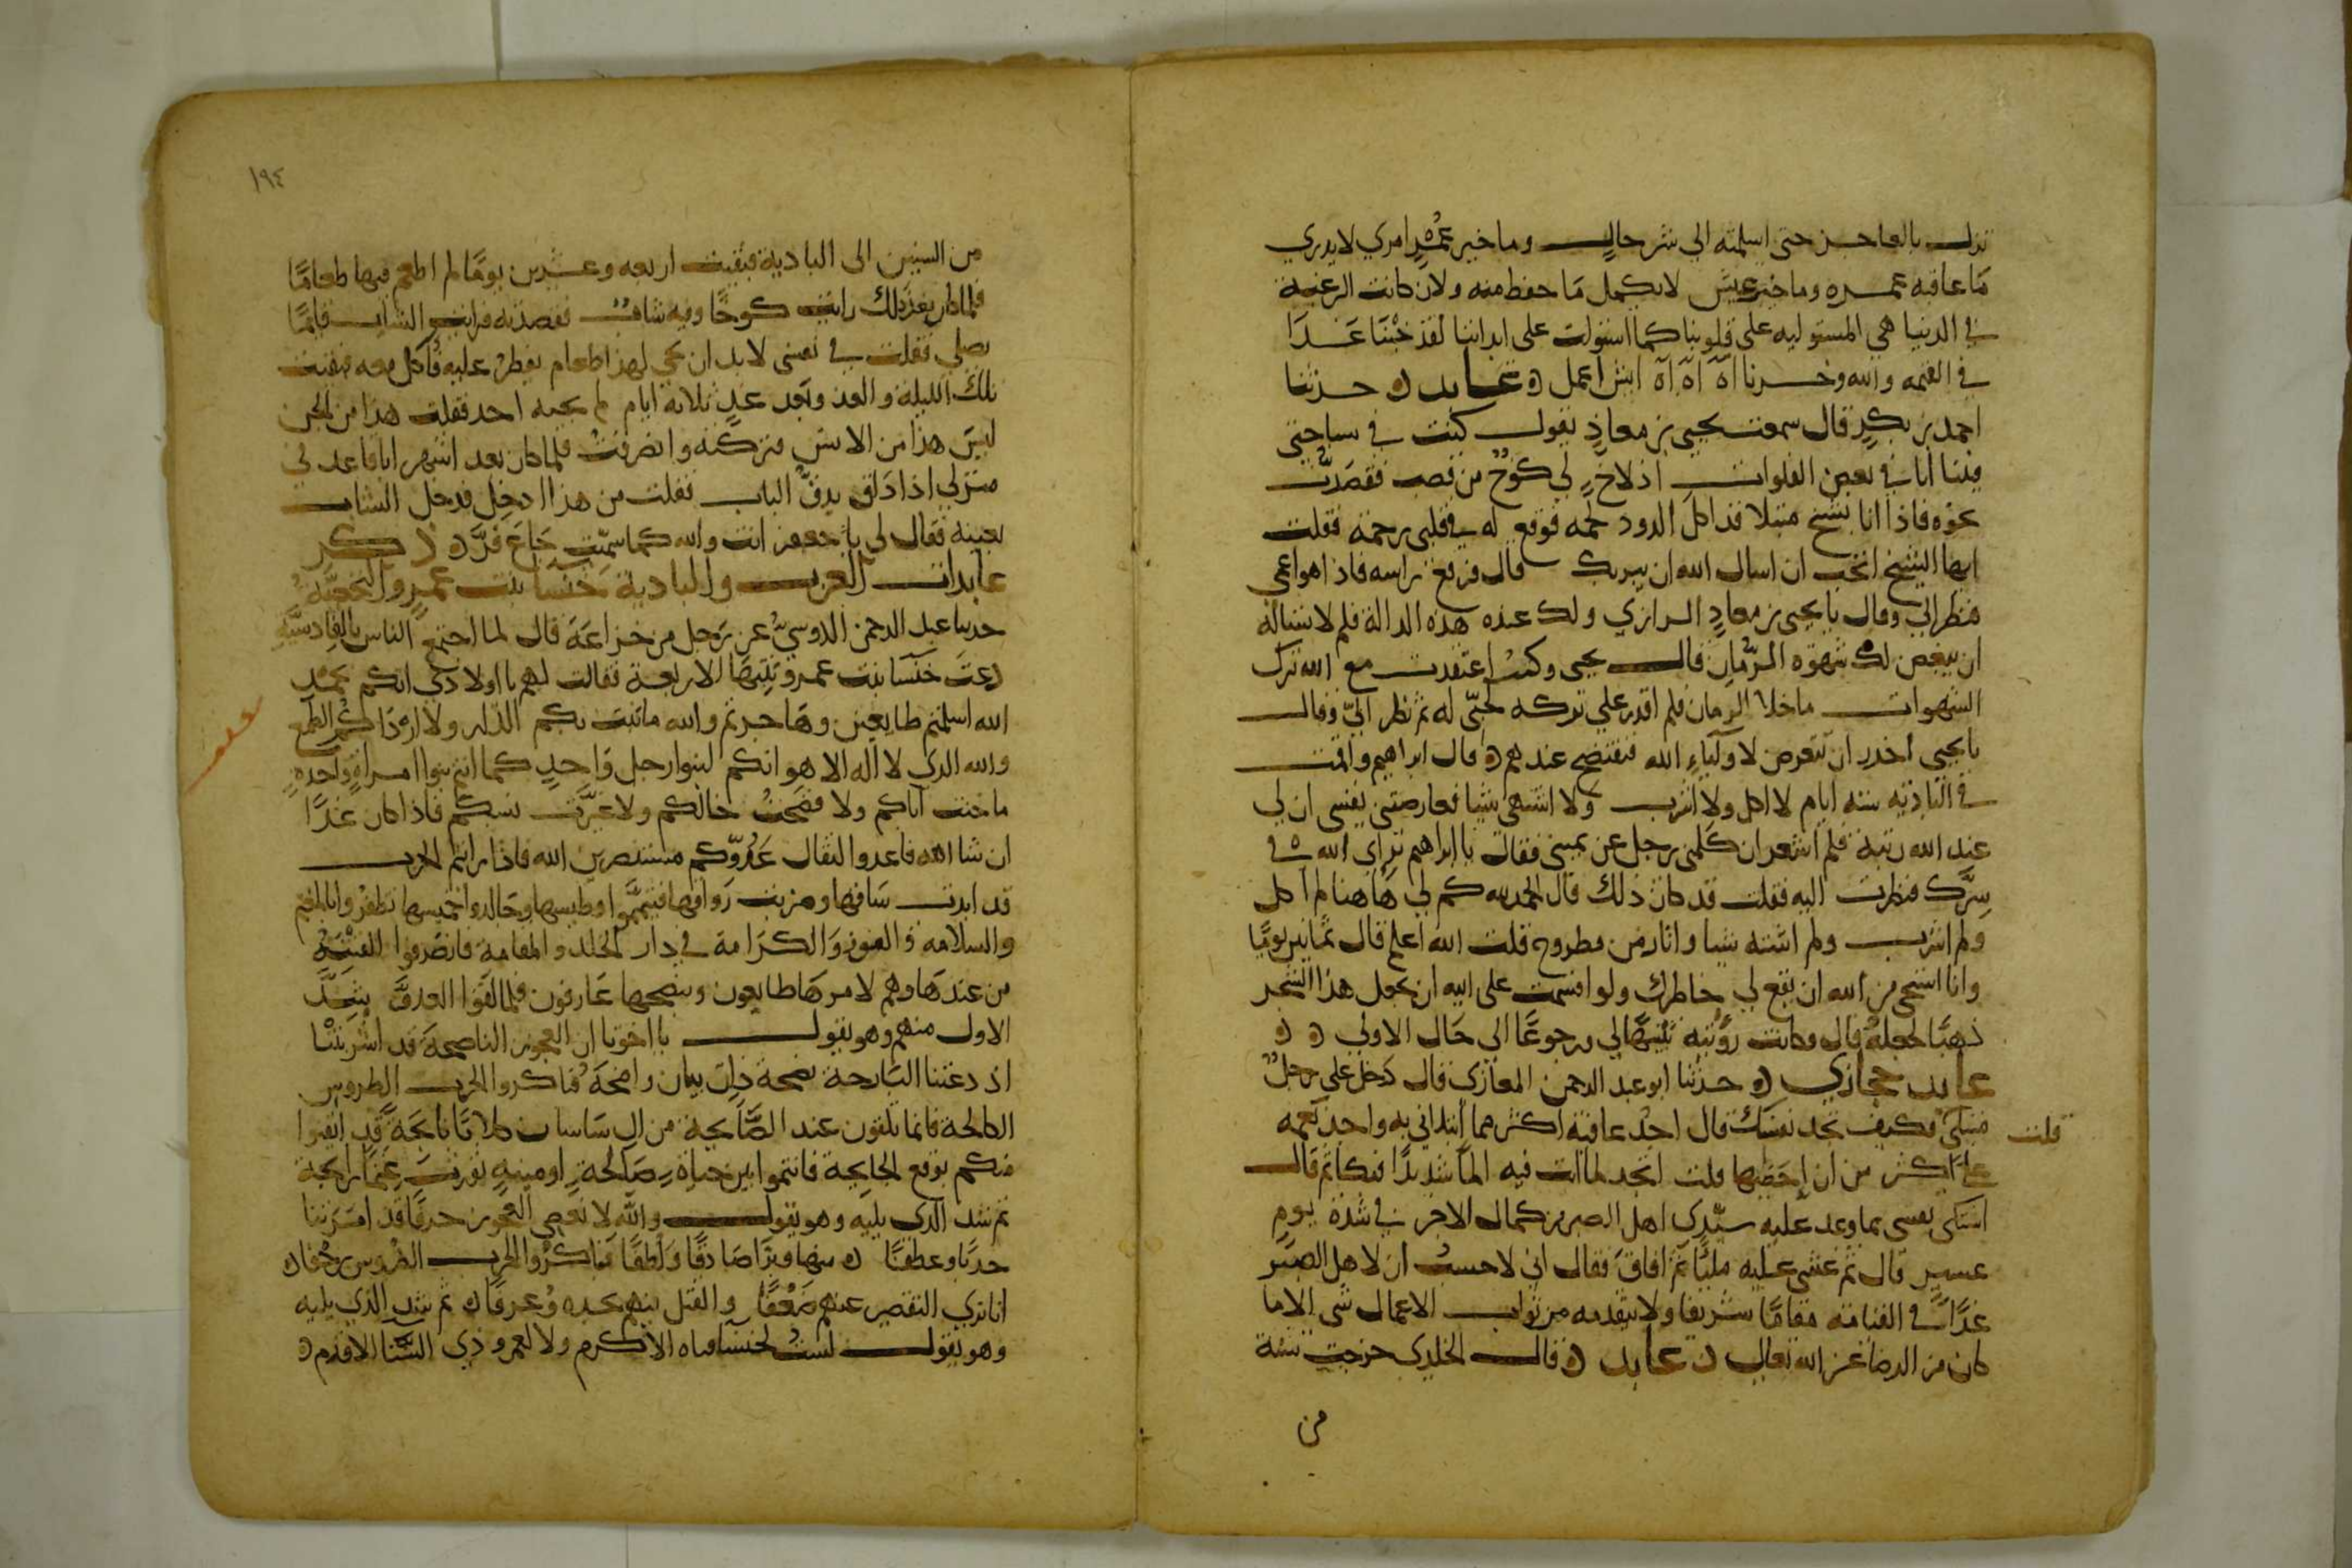 نزلت بالعاجز حتى اسلمته الى شر حال وما خير عُمْر امرئ لا يدري
مَا عاقبه عمره وما خير عيش لا يكمل مَا حفظ منه ولان كانت الرغبة
في الدنيا هي المستوليه على قلوبنا كما استولت على ابداننا لقد خبْنَا غَدَا
في القيمه والله وخسرنا آه آه آه ايش اعمل ه عابد ه حدثنا
احمد بن بكر قال سمعت يحيى بن معاذ يقول كنت في سياحتي
فبينا انا في بعض الفلوات اذ لاح لي كوخ من قصب فقصدت
نحوه فاذا انا بشيخ مبتلا قد اكل الدود لحمه فوقع له في قلبي رحمة فقلت
ايها الشيخ اتحب ان اسال الله ان يبريك قال فرفع راسه فاذا هو اعمى
فنظر الي وقال يا يحيى بن معاذ الرازي ولك عنده هذه الدالة فلم لا تساله
ان يبغض لك شهوة الرُّمان قال يحيى وكنت اعتقدت مع الله ترك
الشهوات ما خلا الرمان فلم اقدر علي تركه لحُبّي له ثم نظر اليّ وقال
يا يحيى احذر ان تتعرض لاولَيَاءِ الله فتفتضح عندهم ه قال ابراهيم واقمت
في البادية ستة ايام لا اكل ولا اشرب ولا اشتهي شيا فعارضتني نفسي ان لي
عند الله رتبة فلم اشعر ان كلمني رجل عن يميني فقال يا ابراهيم ترائ الله في
سِرَّك فنظرت اليه فقلت قد كان ذلك قال الحمد لله كم لي هَاهنا لم آكل
ولم اشرب ولم اشته شيا وانا زمن مطروح قلت الله اعلم قال ثمانين يومًا
وانا استحي من الله ان يقع لي خاطرك ولو اقسمت على الله ان يجعل هذا الشجر
ذهبًا لجعله قال وكانت رؤيته تنبيهًا لي ورجوعًا الى حَال الاولى ه ه
عابد حجازي ه حدثنا ابو عبد الرحمن المغازي قال دخل علي رجل
مبتلى فكيف تجد نفسك قال اجد عافيته اكثر مما ابتلاني به واجد نعمه
قلت
علي اكثر من ان اُحصيها قلت اتجد لما انت فيه الماً شديدًا فبكا ثم قال
اسلى نفسي بما وعد عليه سيّدي اهل الصبر من كمال الاجر في شدة يوم
عسير قال ثم غشي عليه مليًّا ثم افاق فقال اني لاحسب ان لاهل الصبر
غدًا في القيامة مقامًا شريفا ولا يتقدمه من ثواب الاعمال شي الا ما
كان من الرضا عن الله تعالى ه عابد ه قال الخلدي خرجت سنة
من
١٩٤
من السنين الى البادية فبقيت اربعه وعشرين يومًا لم اطعم فيها طعامًا
فلما كان بعد ذلك رايت كوخًا وفيه شاب فقصدته فرايت الشاب قايمًا
يصلي فقلت في نفسي لا بد ان يجي لهذا طعام يفطر عليه فآكل معه فبقيت
تلك الليلة والغد وبعد غدٍ ثلاثة ايام لم يجيه احد فقلت هذا من الجن
ليس هذا من الانس فتركته وانصرفت فلما كان بعد اشهر انا قاعد في
منزلي اذا دَاق يدقّ الباب فقلت من هذا ادخل فدخل الشاب
بعينه فقال لي يا جعفر انت والله كما سمّيت جَاع فرّ ه ذكر
عابدات العرب والبادية خَنسا بنت عمرو النخعيّة
حدثنا عبد الرحمن الدوسيّ عن رَجل من خزاعَة قال لما اجتمع الناس بالقادسيَّة
دعت خَنسا بنت عمرو بَنيهَا الاربعة فقالت لهم يا اولادي انكم بحمْد
الله اسلمتم طايعين وهَاجرتم والله ما نبت بكم الدار ولا اردَاكُم الطمع
والله الذي لا اله الا هو انكم لبنوا رجل وَاحِدٍ كما انتم بنوا امراةٍ واحدةٍ
ما خنت اباكم ولا فضحت خالكم ولا غيّرت نسبكم فاذا كان غدًا
ان شا الله فاغدوا لقتال عَدُوّكم مستنصرين الله فاذا رايتم الحرب
قد ابدت سَاقها وضربت رَواقها فتيمَّموا وطيسها وجَالدوا خميسها تظفروا بالمغنم
والسلامه والفوز وَالكرَامة في دار الخلد والمقامة فانصَرفوا الفتية
من عندهَا وهم لامرهَا طايعون وبنصحهَا عَارفون فلما لقوا العدوَّ شدّ
الاول منهم وهو يقول يا اخوتا ان العجوز الناصحَة قد اشربتْنا
اذ دعتنا البَارحة نصحة ذات بيان واضحَة فباكروا الحرب الضروس
الكالحة فانما تلقون عند الصَّايحة من ال سَاسان كلابًا نابحَة قد ايقنوا
منكم بوقع الجايحة فانتموا بين حياةٍ صَالحةٍ او ميتةٍ تورث غنمًا رابحة
ثم شد الذي يليه وهو يقول والله لا نعصي العجوز حرفًا قد امرتنا
حدبًا وعطفًا ه منها وبرًا صَادقًا ولطفًا فباكروا الحرب الضروس زحفا ه
انا نري التقصير عنهم ضَعْفًا والقتل فيهم نجده وعرفا ه ثم شد الذي يليه
وهو يقول لست لخنسا ولا الاكرم ولا لعمرو ذي السنا الاقدم ه